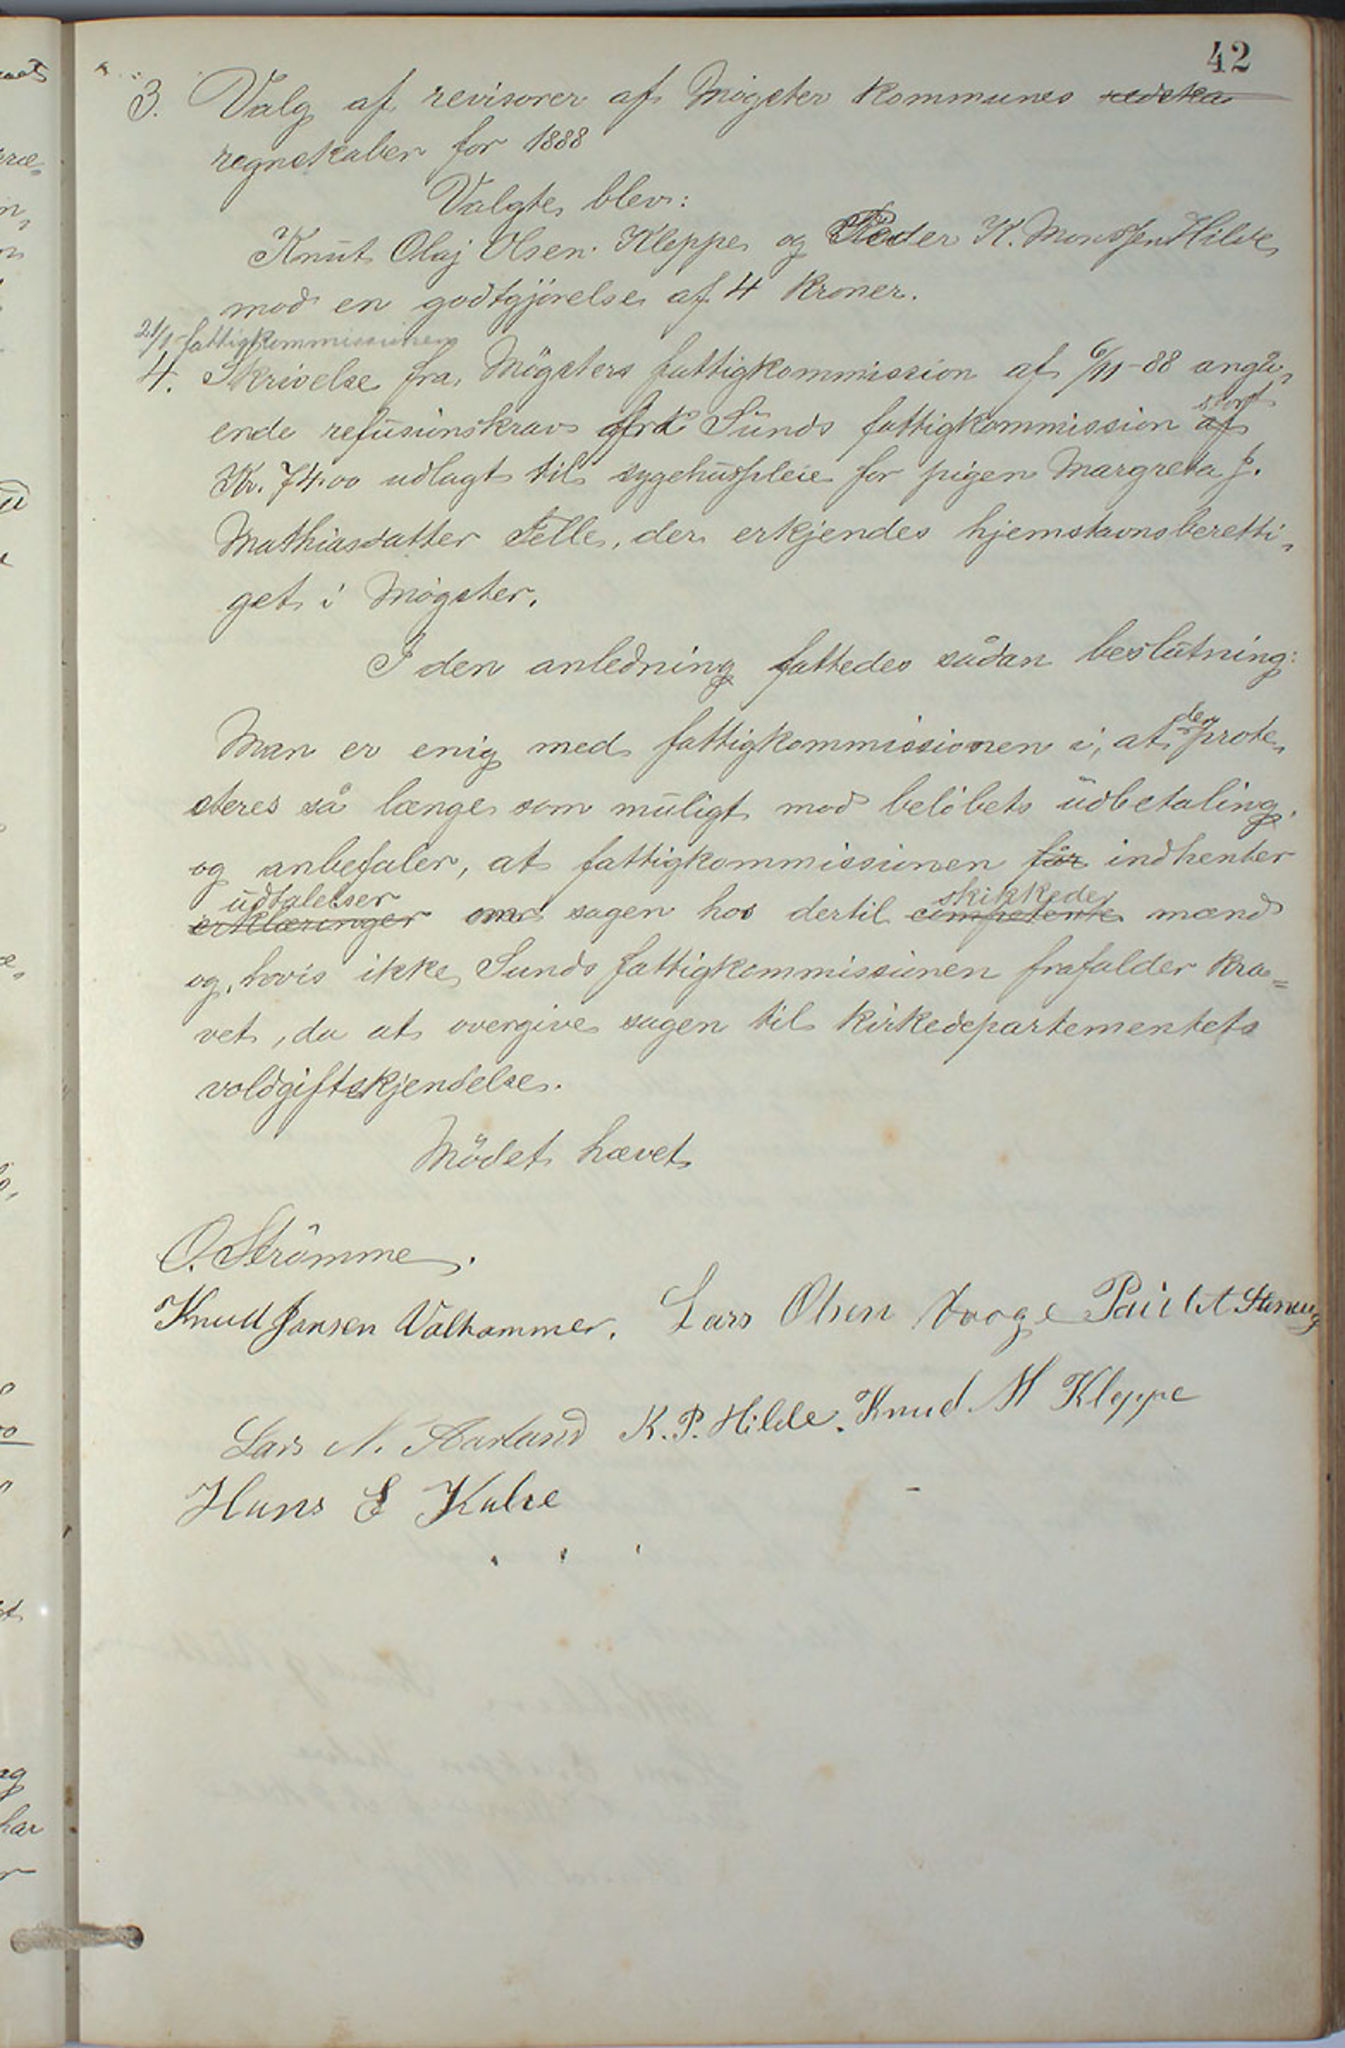 42
3. Valg af revisorer af Møgster kommunes
regnskaber for 1888
Valgte blev:
Knut Olaj Olsen Kleppe og Peder K. Monssen Hilde
mod en godtgjörelse af 4 kroner.
21/1 fattigkommissionen
4. Skrivelse fra Mögsters fattigkommission af 6/11-88 angå-
ende refusionskrav fra Sunds fattigkommission af stort
Kr. 74.00 udlagt til sygehuspleie for pigen Margreta J.
Mathiasdatter Telle, der erkjendes hjemstavnsberetti-
get i Møgster.
I den anledning fattedes sådan beslutning:
Man er enig med fattigkommissionen i, at der prote-
steres så længe som muligt mod beløbets udbetaling,
og anbefaler, at fattigkommissionen får indhenter
udtalelser skikkeder
erklæringer om sagen hos dertil competente mænd
og, hvis ikke Sunds fattigkommissionen frafalder kra=
vet, da at overgive sagen til kirkedepartementets
voldgiftskjendelse.
Mödet hævet
O. Strömme.
Knud Jansen Valhammer. Lars Olsen Vaage
Lars N. Aarland K. P. Hilde. Knud M Kleppe
Hans E Kalve